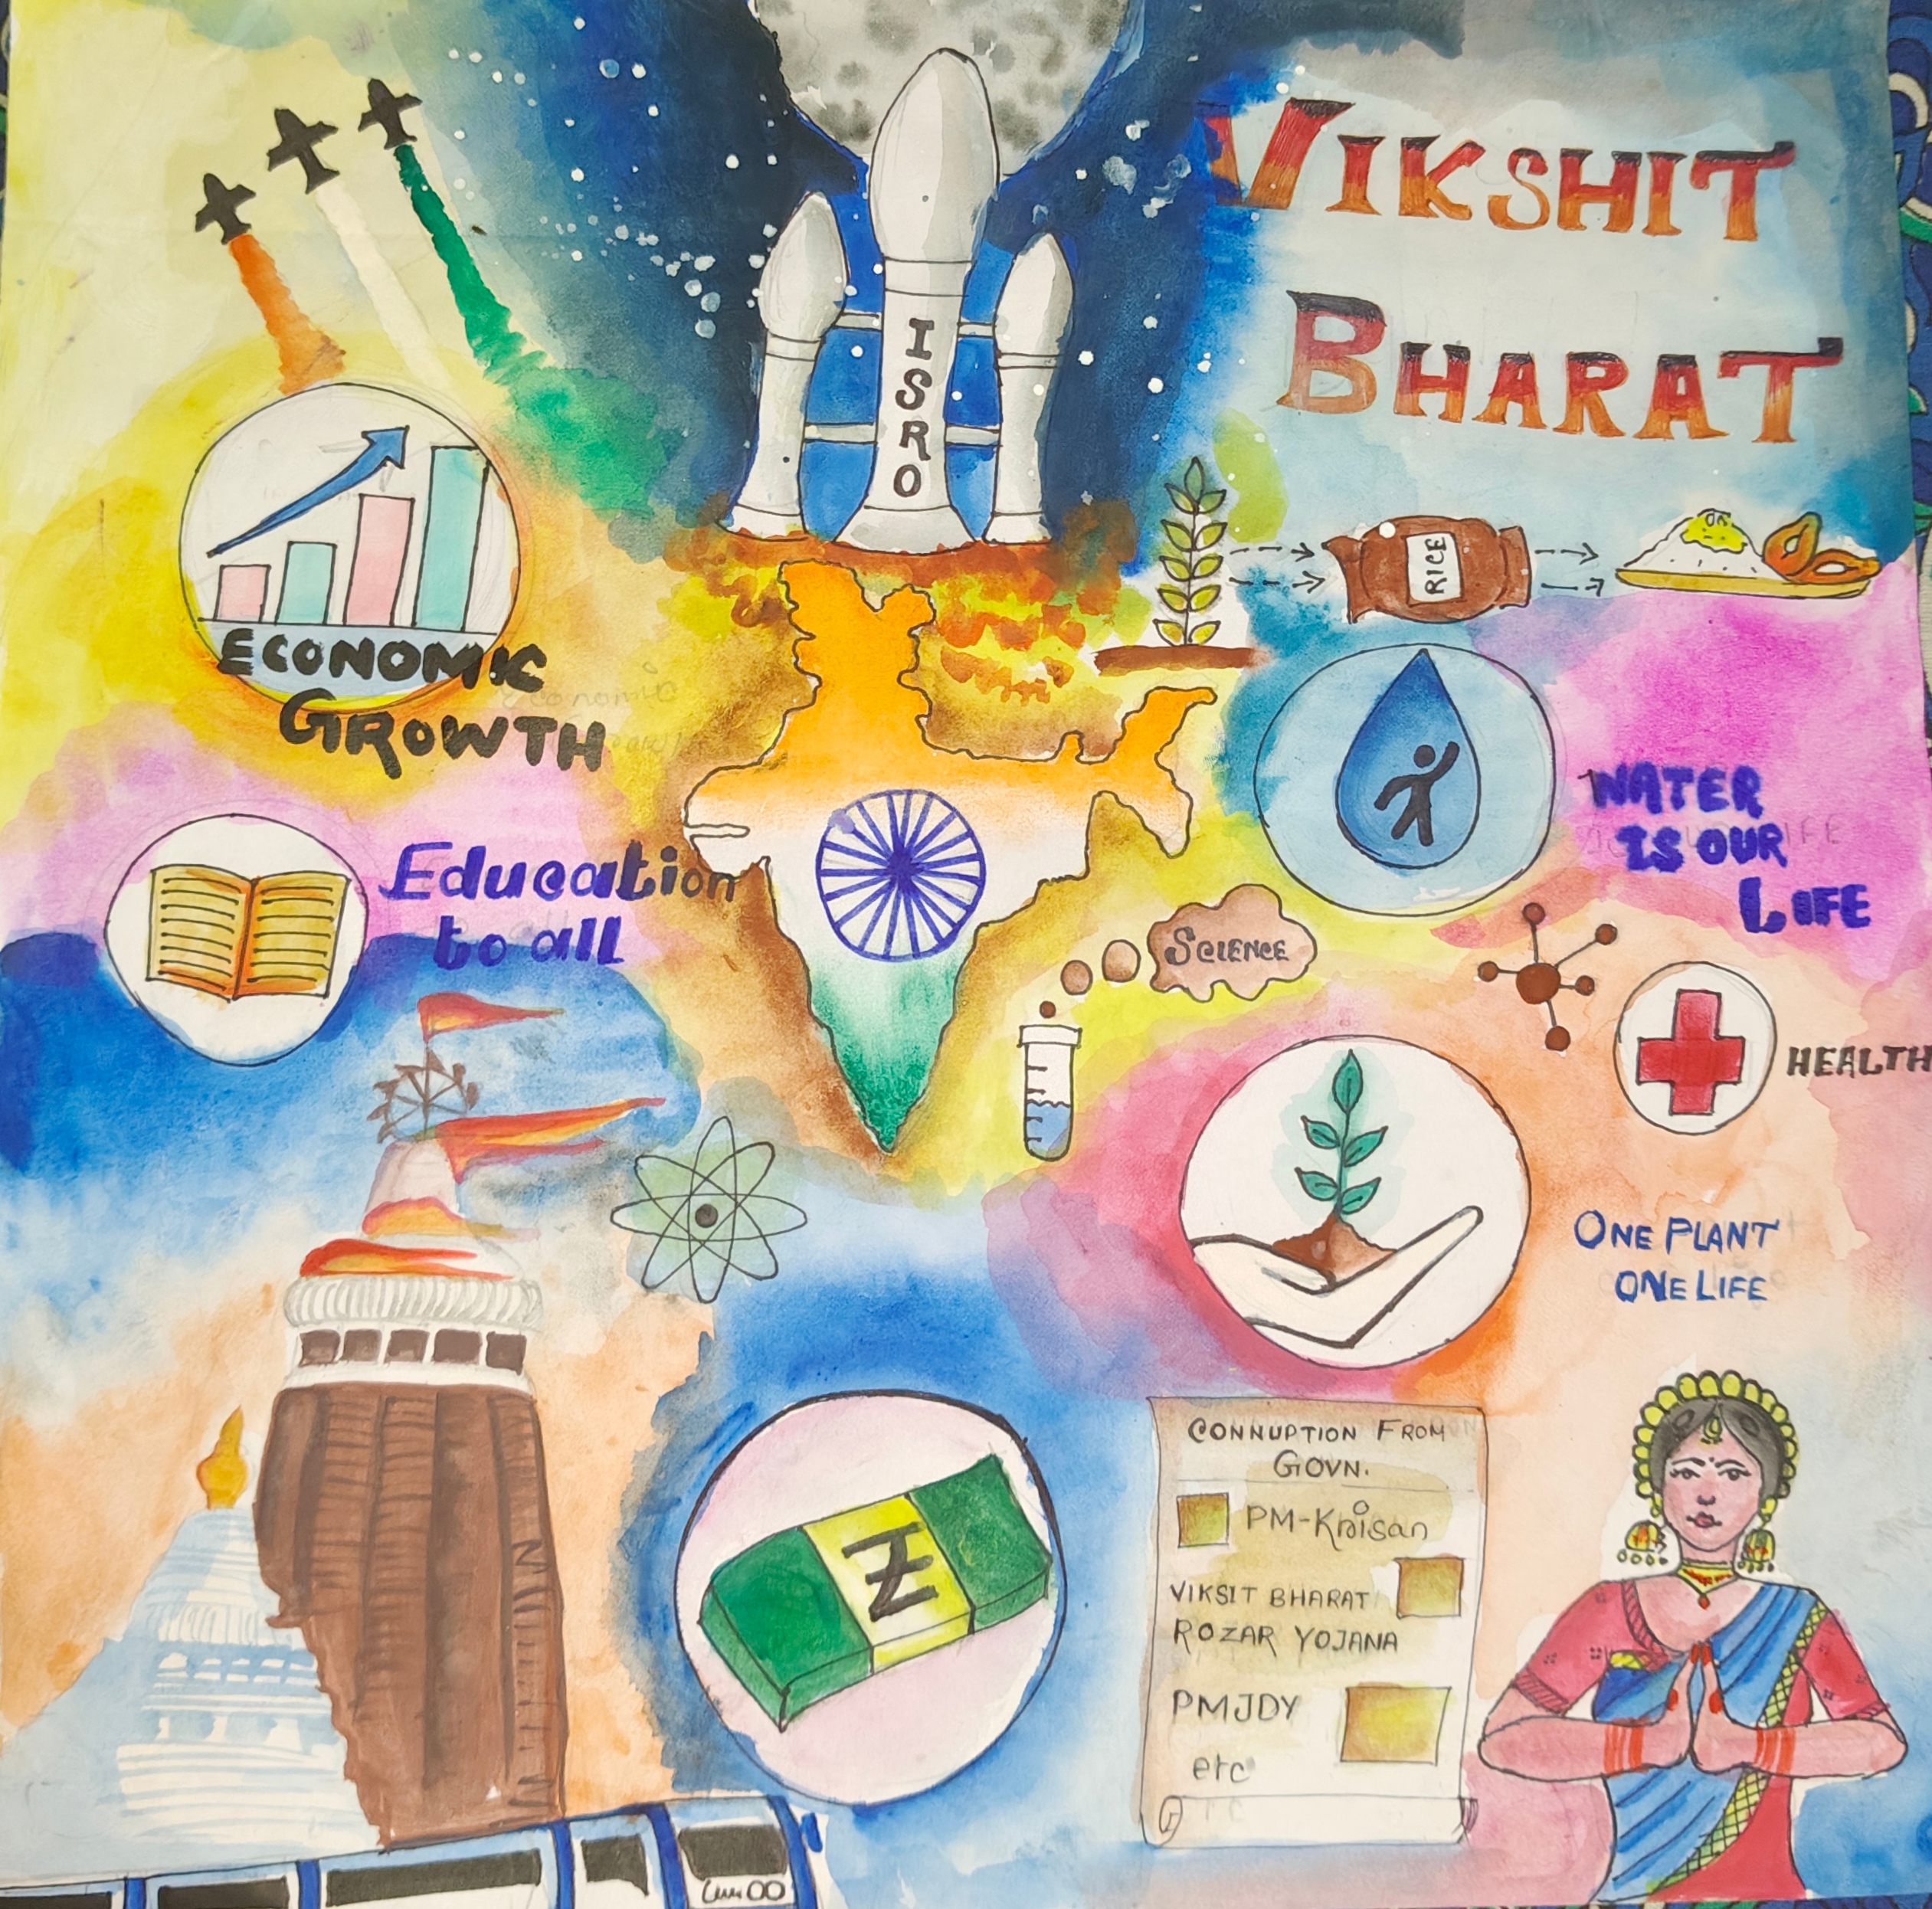 VIKSHIT
BHARAT
ISRO
RICE
ECONOMIC
GROWTH
WATER
IS OUR
LIFE
Education
to all
SCIENCE
HEALTH
ONE PLANT
ONE LIFE
CONNUPTION FROM
GOVN.
PM-Knisan
VIKSIT BHARAT
ROZAR YOJANA
PMJDY
etc